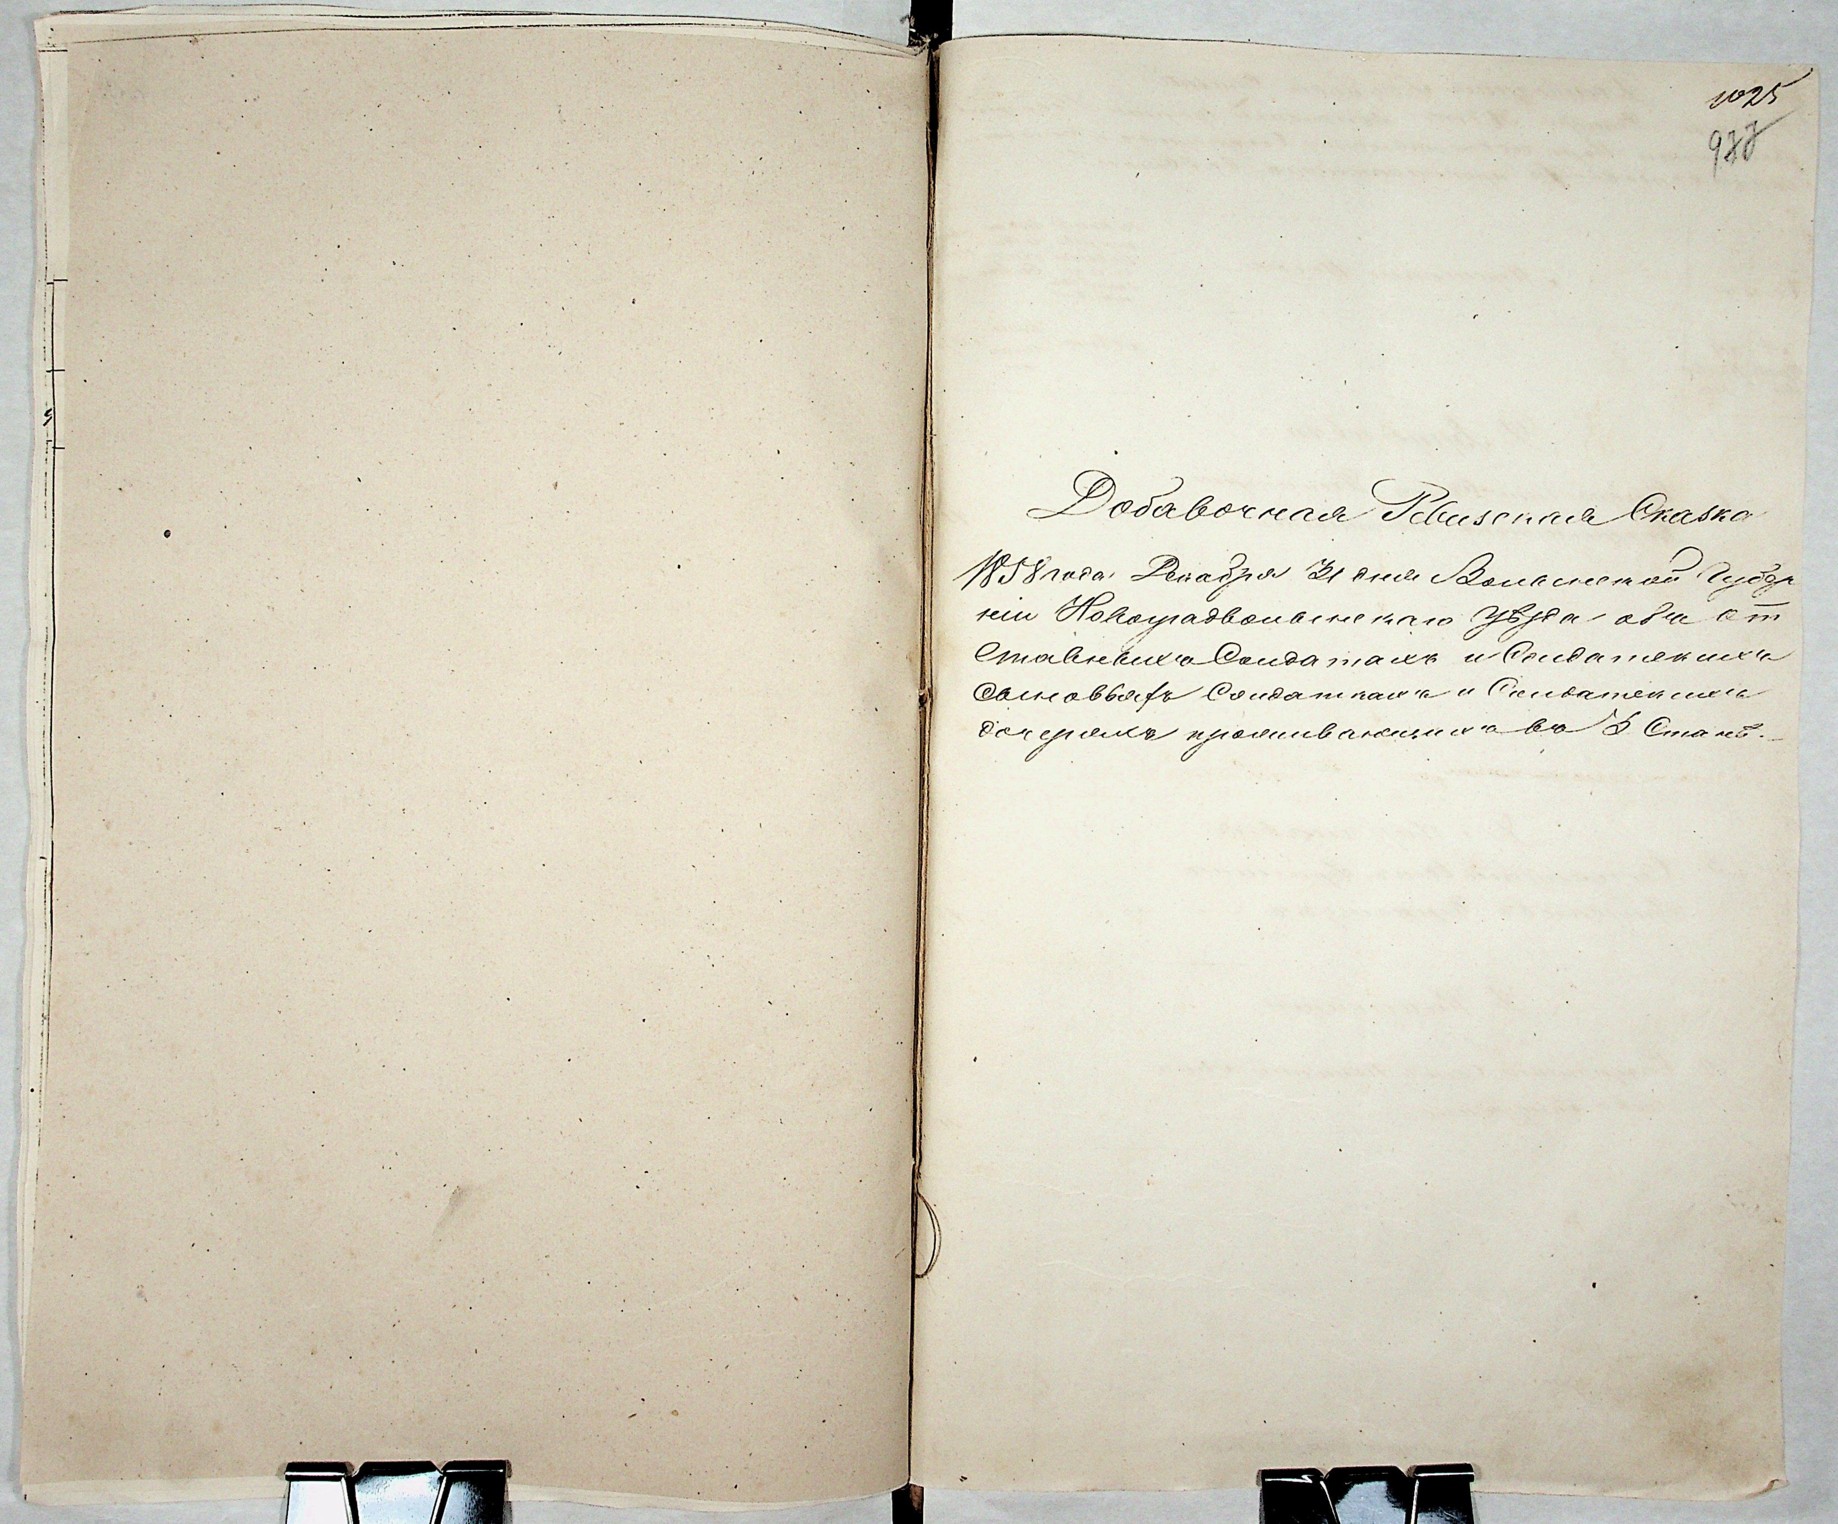 1025
977
Добавочная Ревизская Сказка
1858 года Декабря 31 дня Волынской Губер
ніи Новоградволынскаго Уѣзда обь от
Ставныхъ Солдатахъ и Солдатскихъ
Сыновьяхъ Солдаткахъ и Солдатскихъ
дочеряхъ проживающихъ въ 3 Станѣ.